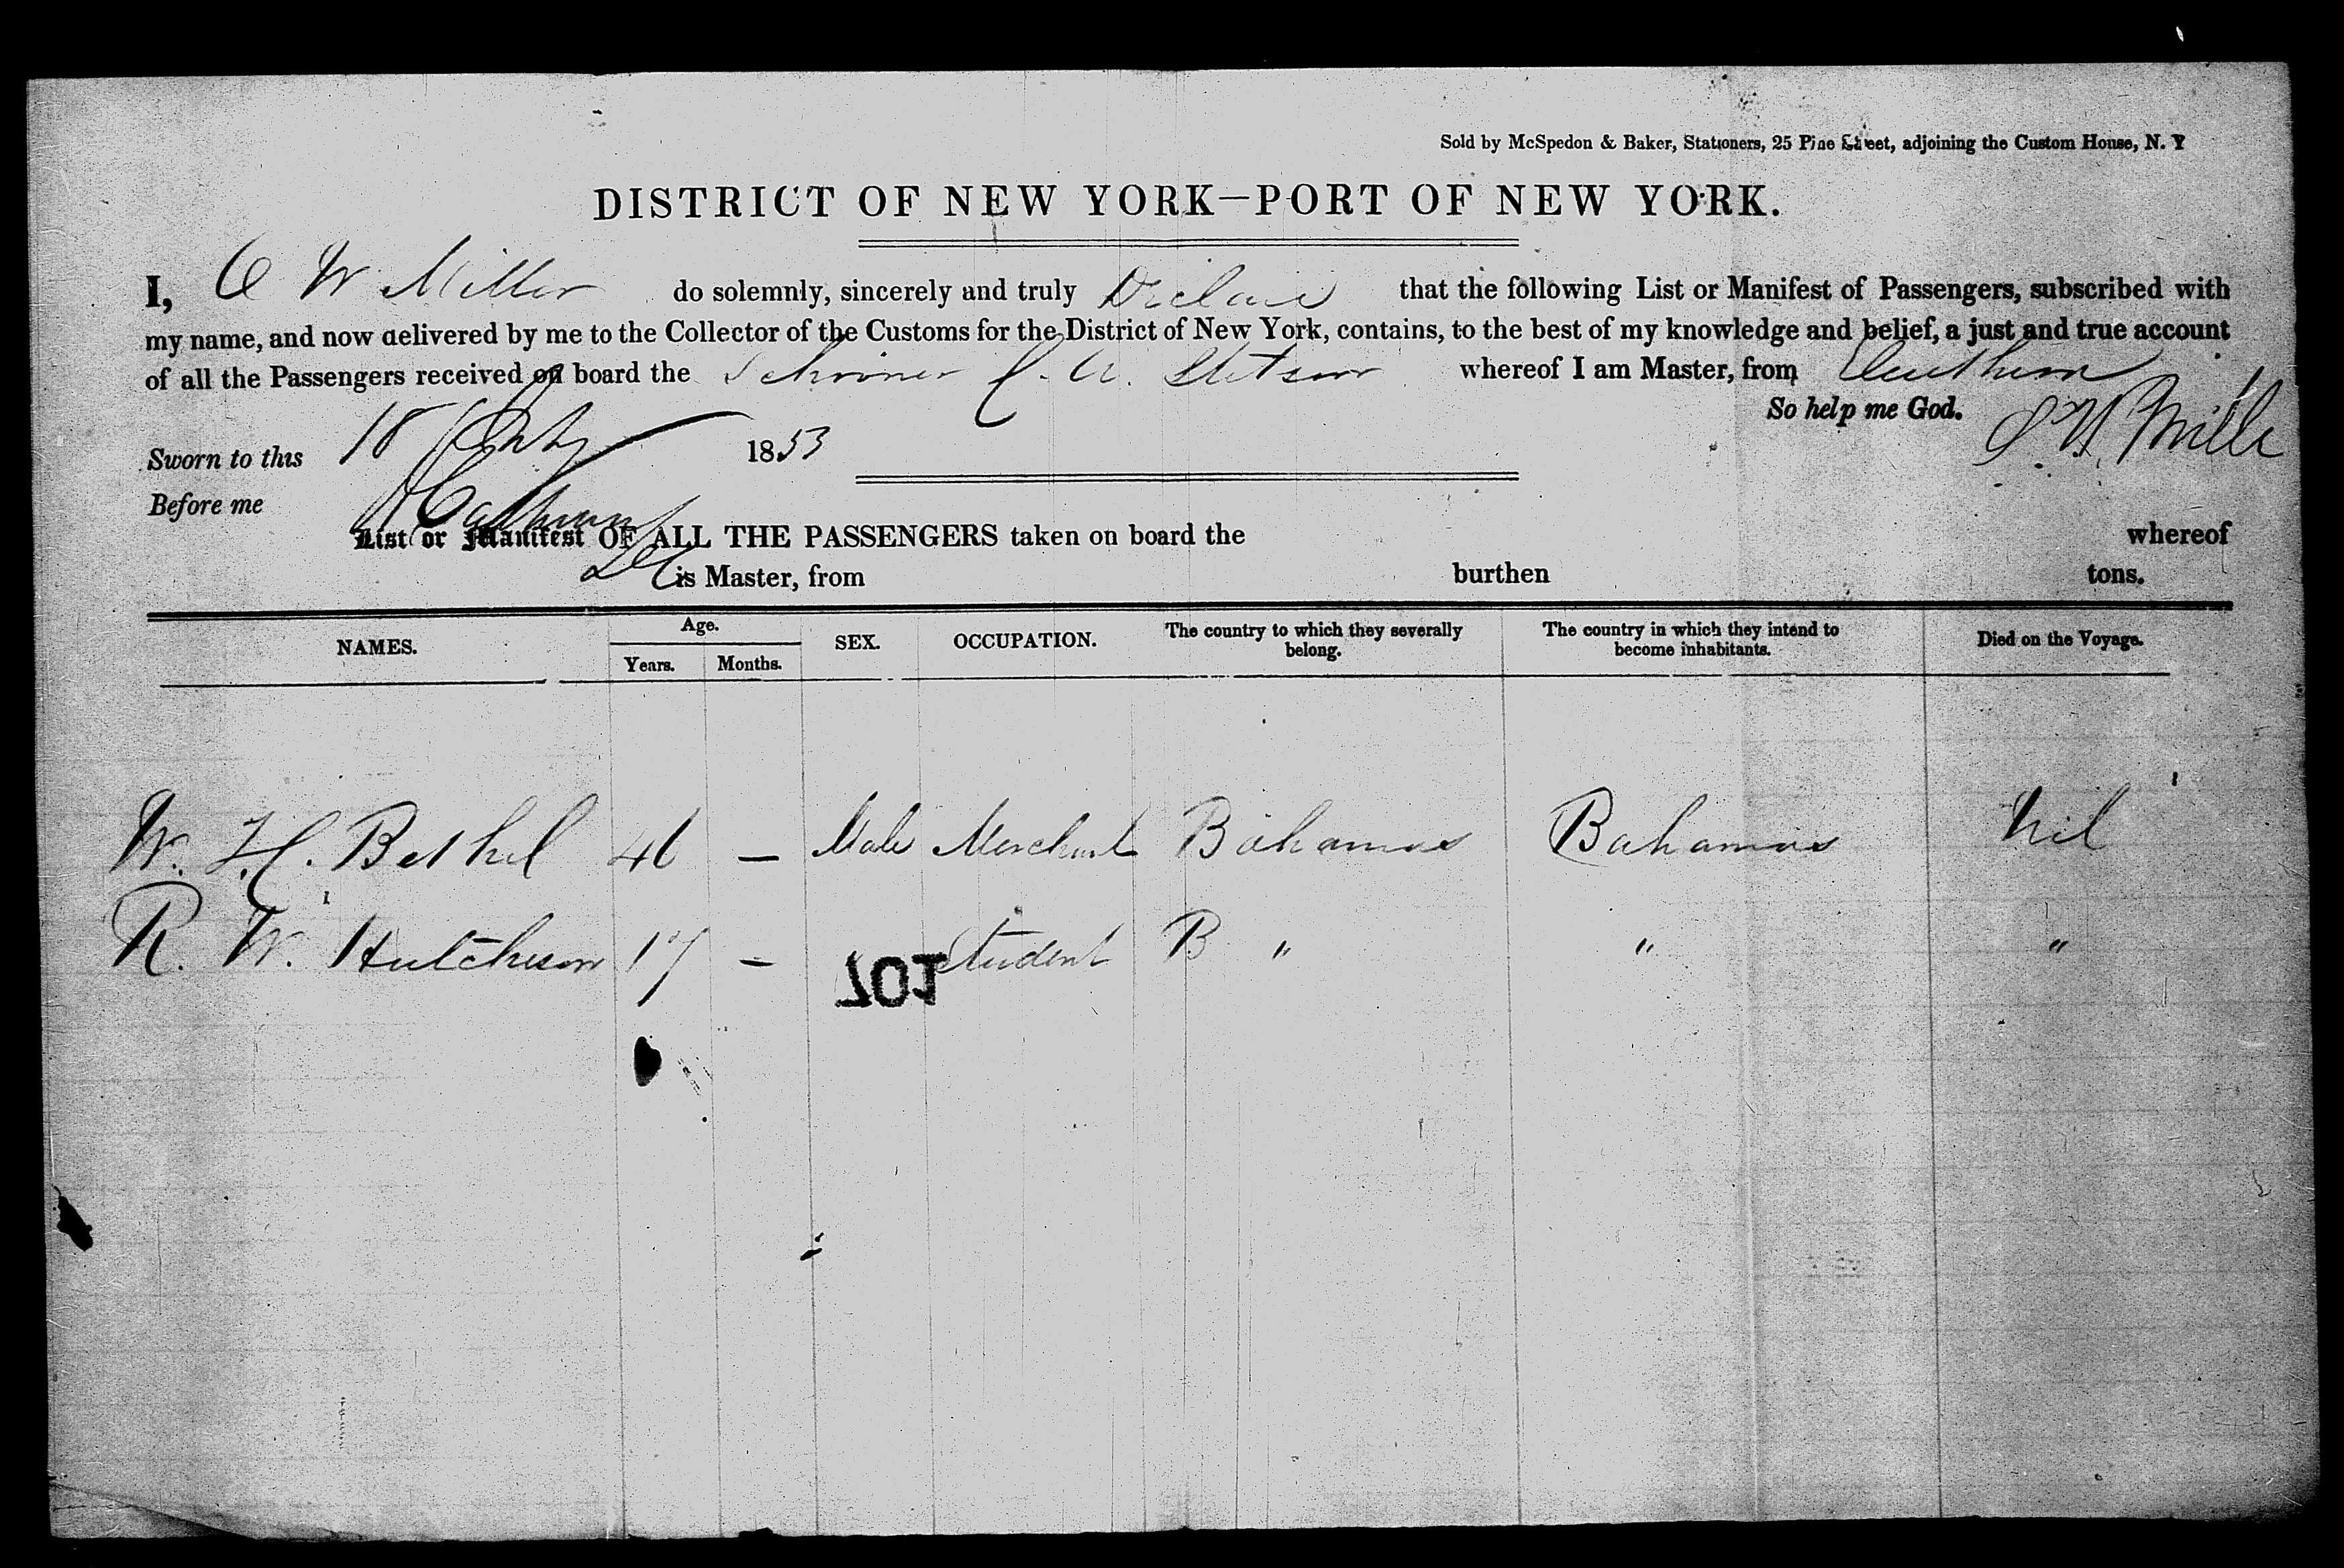 Sold by McSpedon & Baker, Stationers, 25 Pine Street, adjoining the Custom House, N. Y
DISTRICT OF NEW YORK—PORT OF NEW YORK.
I, W Miller do solemnly, sincerely and truly Declare that the following List or Manifest of Passengers, subscribed with
my name, and now delivered by me to the Collector of the Customs for the District of New York, contains, to the best of my knowledge and belief, a just and true account
of all the Passengers received on board the Schooner C. A. Stetson whereof I am Master, from
So help me God.
Sworn to this 18 1853
Before me
List or Manifest OF ALL THE PASSENGERS taken on board the whereof
is Master, from burthen tons.
NAMES. Age. Years. Months. SEX. OCCUPATION. The country to which they severally belong. The country in which they intend to become inhabitants. Died on the Voyage.
W. H. Bethel 46 — Male Merchant Bahamas Bahamas Nil
R. W. Hutcheson 17 — Student B " " "
701